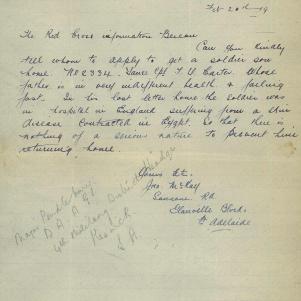 Feb 20th - 19
The Red Cross information Bureau
Can you kindly
tell whom to apply to get a soldier son
home. No 2334. Lance Cpl. T. U. Carter. Whose
father is in very indifferent health & failing
fast. In his last letter home the soldier was
in hospital in England suffering from a skin
disease contracted in Egypt. So that there is
nothing of a serious nature to prevent him
returning home.
Yours etc.
Jno. McKay
Rd.
Glanville Blocks
Adelaide
Major
D. A. A. G.
4th Military District
Keswick
S A